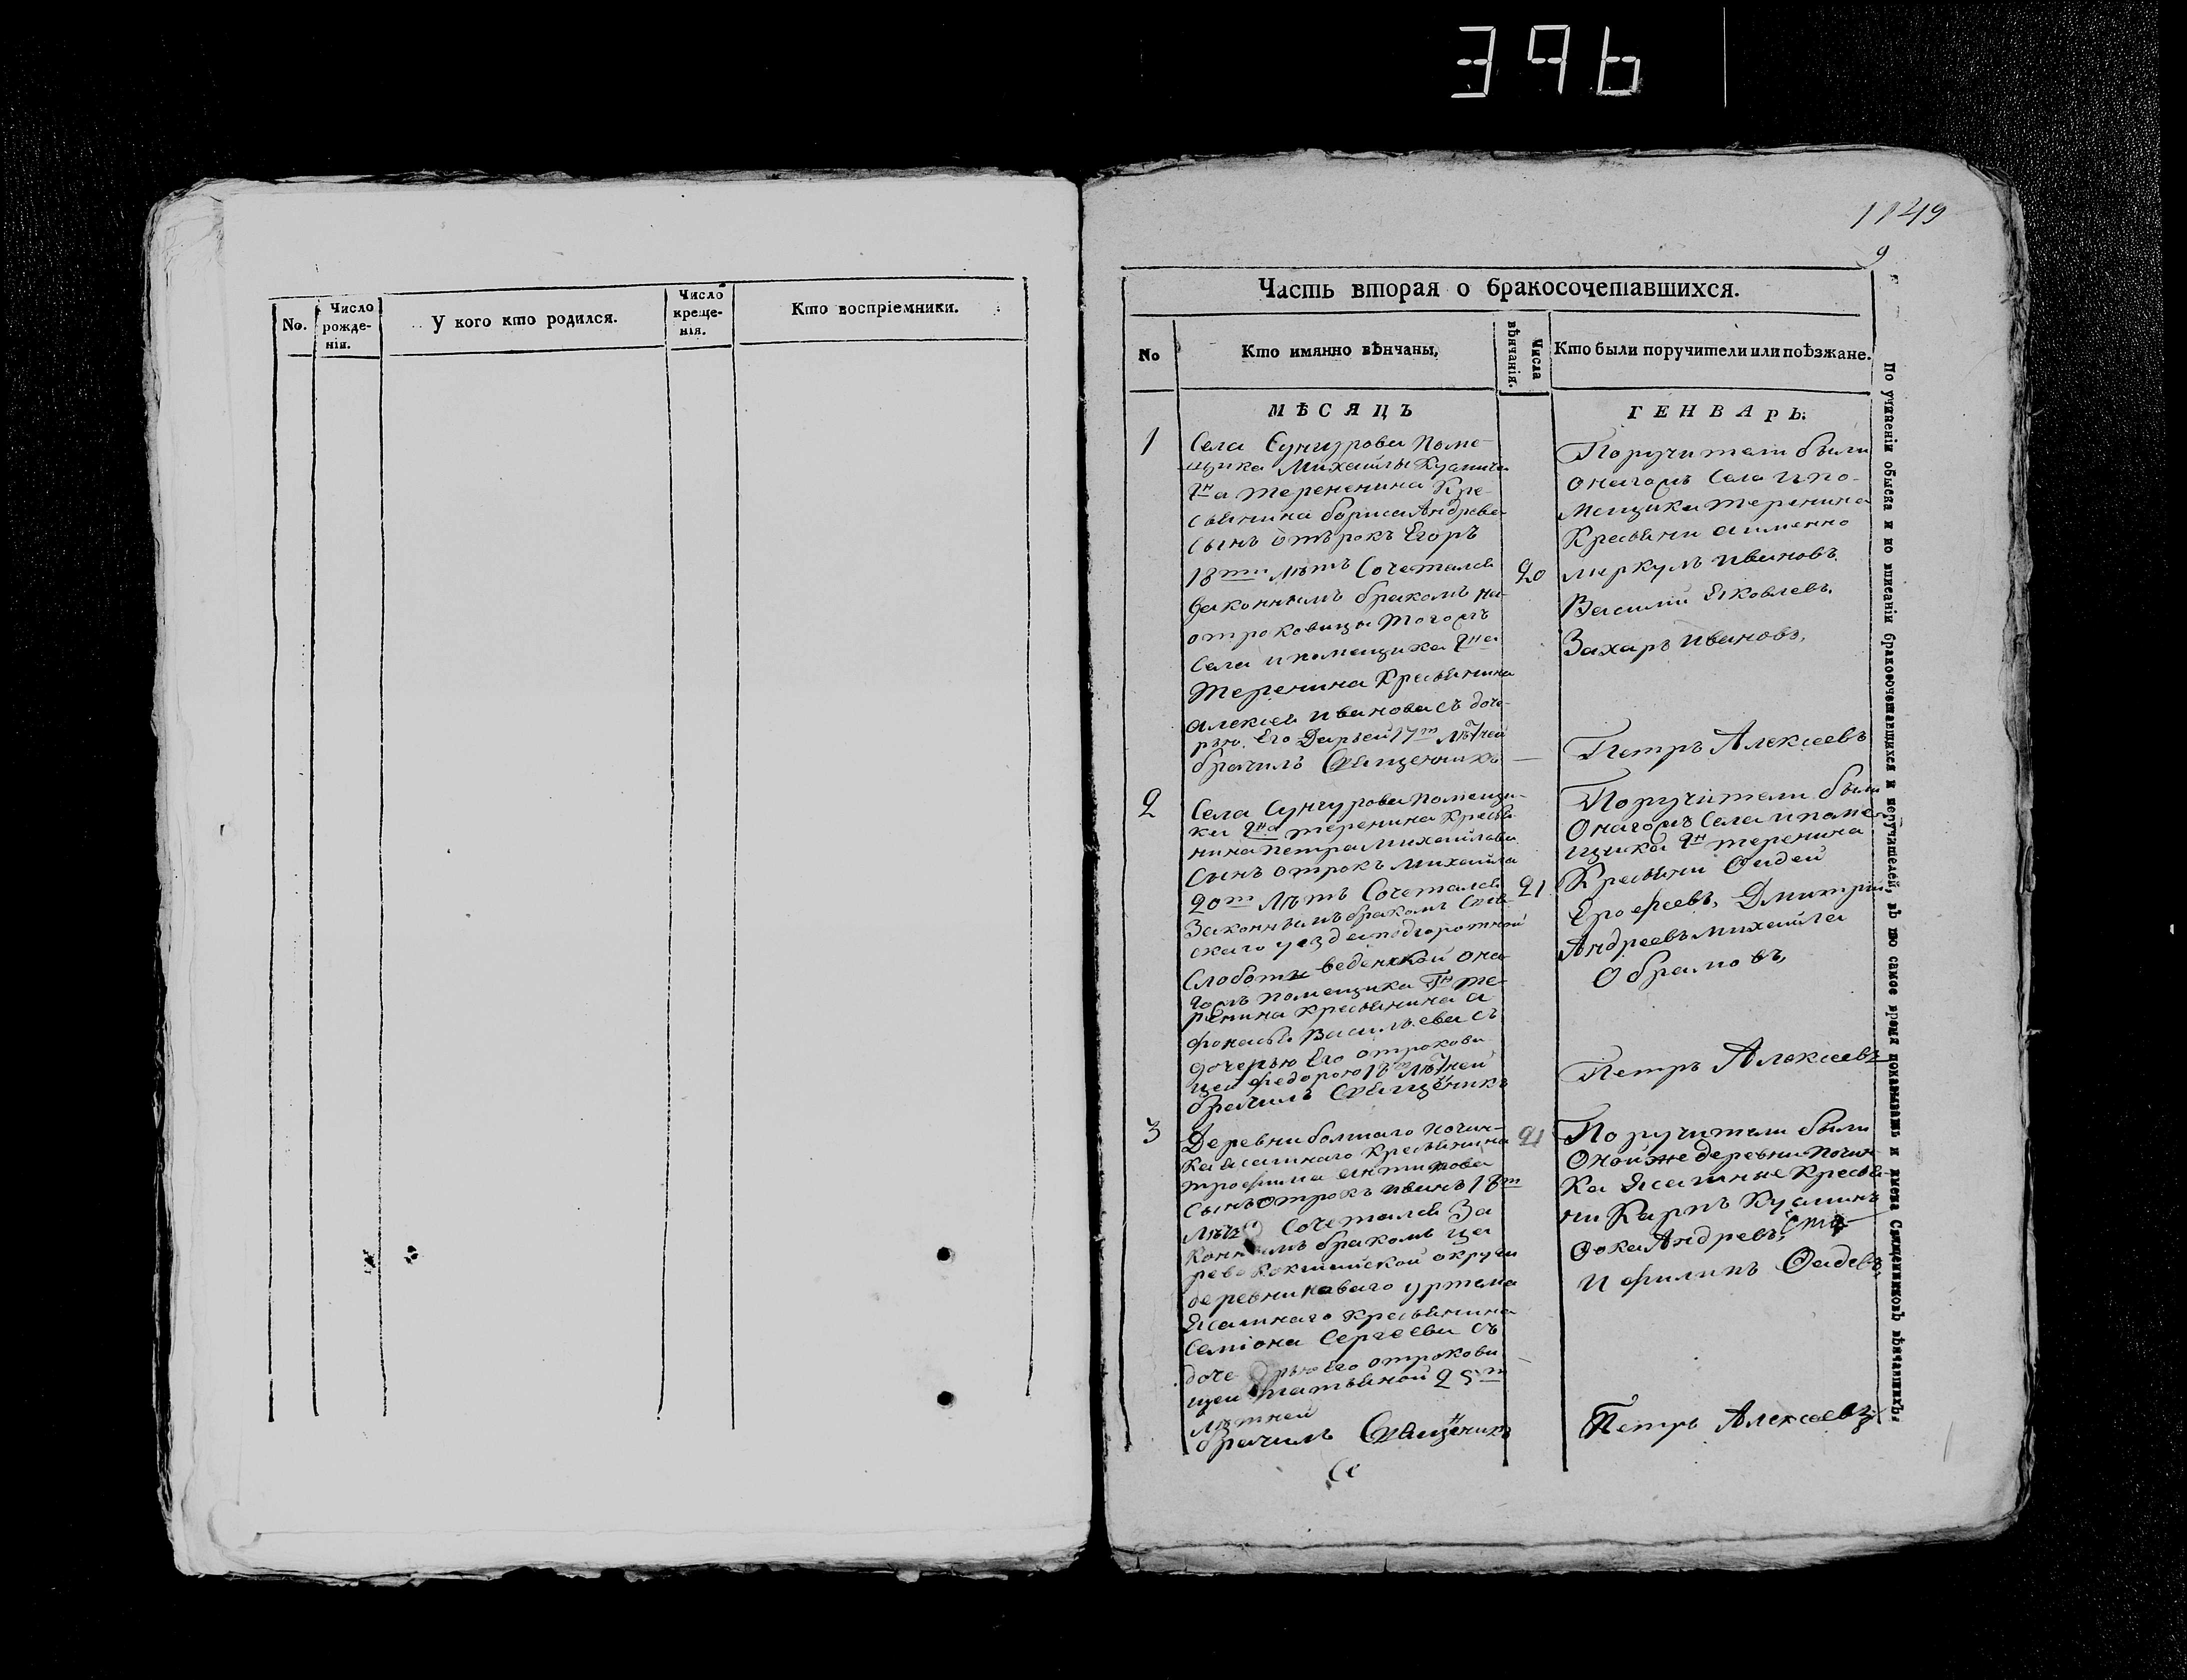 396
1149
9
No.
Число рожде- нія.
У кого кто родился.
Число креще- нія.
Кто воспріемники.
Часть вторая о бракосочетавшихся.
No
Кто имянно вѣнчаны,
Числа вѣнчанія.
Кто были поручители или поѣзжане.
МѢСЯЦЪ
ГЕНВАРЬ.
1
Села Сунгурова Поме-
щика Михайлы
Гна теренина Кре-
стьянина бориса Андрева
Сынъ отрокъ Егоръ
18ти лѣтъ Сочетался
Законнымъ бракомъ на
отроковицы тогожъ
Села и помещика Гна
теренина Крестьянина
алексея иванова съ доче-
рью Его Дарьей 17т лѣтней
брачилъ Священникъ
20
Поручители были
онагожъ Села и по-
мещика теренина
Крестьяни аименно
меркулъ ивановъ
Василий Яковлевъ.
Захаръ ивановъ,
Петръ Алексеевъ
2
Села Сунгурова помещи-
ка Гна теренина Крестья
нина петра михайлова
Сынъ отрокъ михайла
20т лѣтъ Сочетался
Законнымъ бракомъ
скаго уезда подгоротной
Слоботы веденской она
гожъ помещика Гн те-
ренина крестьянина а
фонасья Васильева съ
дочерью Его отрокови
цей федорою 18т лѣтней
брачилъ Священикъ
21
Поручители были
Онагожъ Села и поме
щика Гн теренина
Крестьяни Фадей
Ерофеевъ, Дмитрий
Андреевъ михайла
Обрамовъ,
Петръ Алексеевъ
3
Деревни болшаго почин-
ка Ясашнаго крестьянина
трофима антипова
Сынъ отрокъ иванъ 18т
лѣтъ Сочетался За
коннымъ бракомъ ца
рево Кокшайской округи
деревни наваго уртема
Ясашнаго крестьянина
Семіона Сергеева съ
дочерью Его отрокови
цей татьяной 25т
лѣтней
брачилъ Священикъ
21
Поручители были
Оной же деревни почин
ка Ясашные Крестья
ни Карпъ Кузминъ
Фока Андревъ,
и филипъ Фадевъ,
Петръ Алексеевъ
Се
По учиненіи обыска и по вписаніи бракосочетавшихся и поручителей, въ то самое время показывать и имена Священниковъ вѣнчавшихъ.